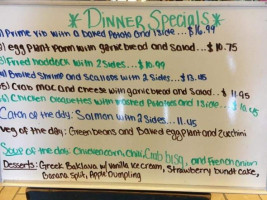 * DINNER Specials *
1) Prime rib with a baked potato and 1 side...$16.99
2) egg plant parm with garlic bread and salad...$10.75
3) Fried haddock with 2 sides...$10.99
4) Broiled Shrimp and Scallops with 2 sides...$13.45
5) Crab mac and cheese with garlic bread and salad...$11.95
6) Chicken croquettes with mashed potatoes and 1 side...$10.45
Catch of the day: Salmon with 2 sides...11.45
Veg of the day: Green beans and Baked eggplant and zucchini
Soup of the day: Chicken corn, Chili, Crab bisq, and French onion
Desserts: Greek Baklava w/ vanilla ice cream, Strawberry bundt cake,
banana split, Apple Dumpling